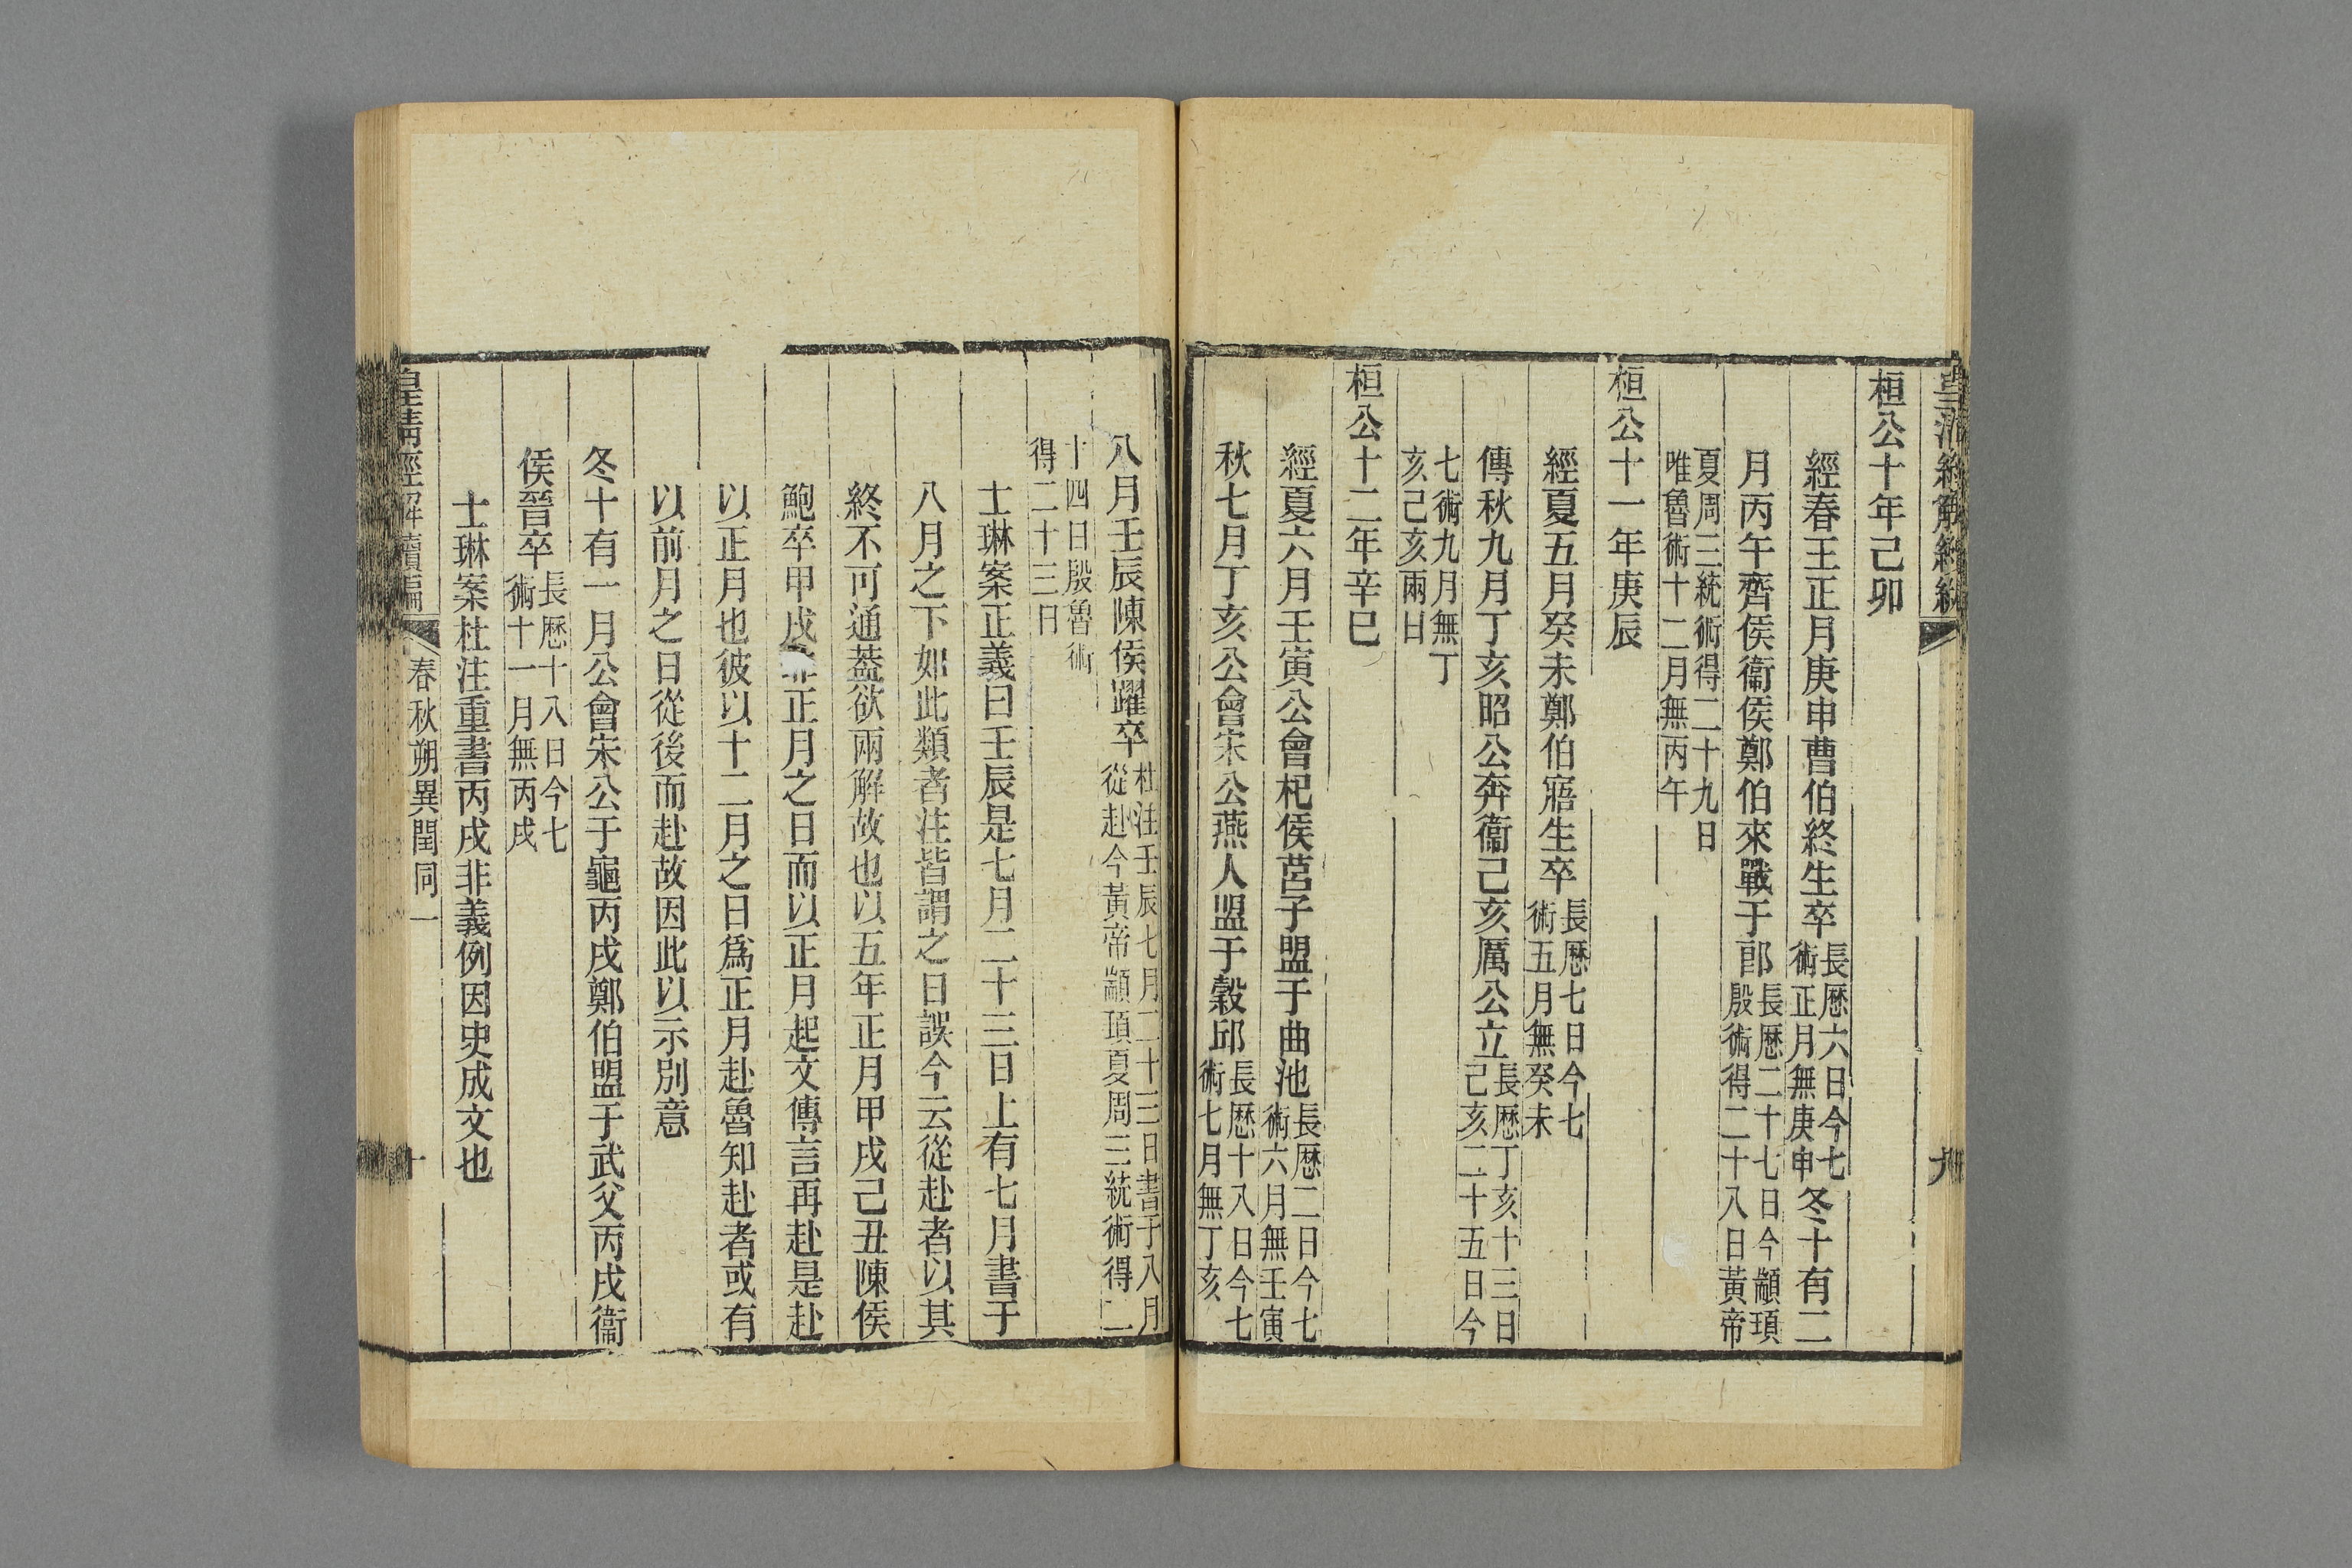 桓公十年己卯
經春王正月庚申曹伯終生卒長厯六日今七術正月無庚申冬十有二
月丙午齊侯衞侯鄭伯來戰于郎長厯二十七日今顓頊殷術得二十八日黃帝
夏周三統術得二十九日唯魯術十二月無丙午
桓公十一年庚辰
經夏五月癸未鄭伯寤生卒長厯七日今七術五月無癸未
傳秋九月丁亥昭公奔衞己亥厲公立長厯丁亥十三日己亥二十五日今
七術九月無丁亥己亥兩日
桓公十二年辛巳
經夏六月壬寅公會杞侯莒子盟于曲池長厯二日今七術六月無壬寅
秋七月丁亥公會宋公燕人盟于穀邱長厯十八日今七術七月無丁亥
八月壬辰陳侯躍卒杜注壬辰七月二十三日書于八月從赴今黃帝顓頊夏周三統術得二
十四日殷魯術得二十三日
士琳案正義曰壬辰是七月二十三日上有七月書于
八月之下如此類者注皆謂之日誤今云從赴者以其
終不可通蓋欲兩解故也以五年正月甲戌己丑陳侯
鮑卒甲戌非正月之日而以正月起文傳言再赴是赴
以正月也彼以十二月之日爲正月赴魯知赴者或有
以前月之日從後而赴故因此以示別意
冬十有一月公會宋公于龜丙戌鄭伯盟于武父丙戌衞
侯晉卒長厯十八日今七術十一月無丙戌
士琳案杜注重書丙戌非義例因史成文也
皇清經解續編 春秋朔異閏同一 十